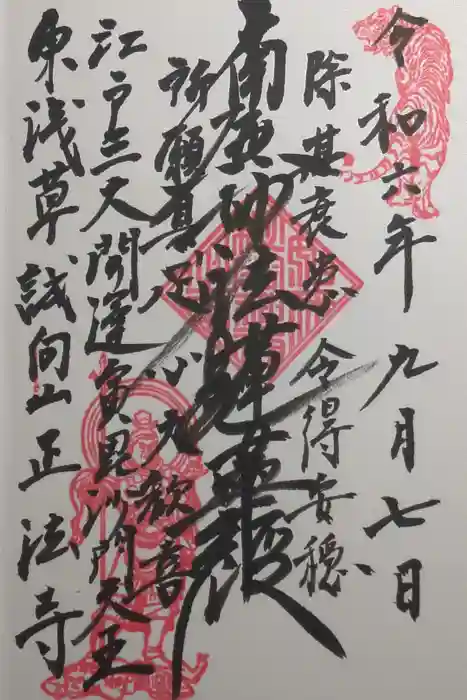 令和六年九月七日
除其衰患 令得安穏
南無妙法蓮華経
所願具足 心大歓喜
江戸三大開運富毘沙門天王
東浅草 誠向山 正法寺